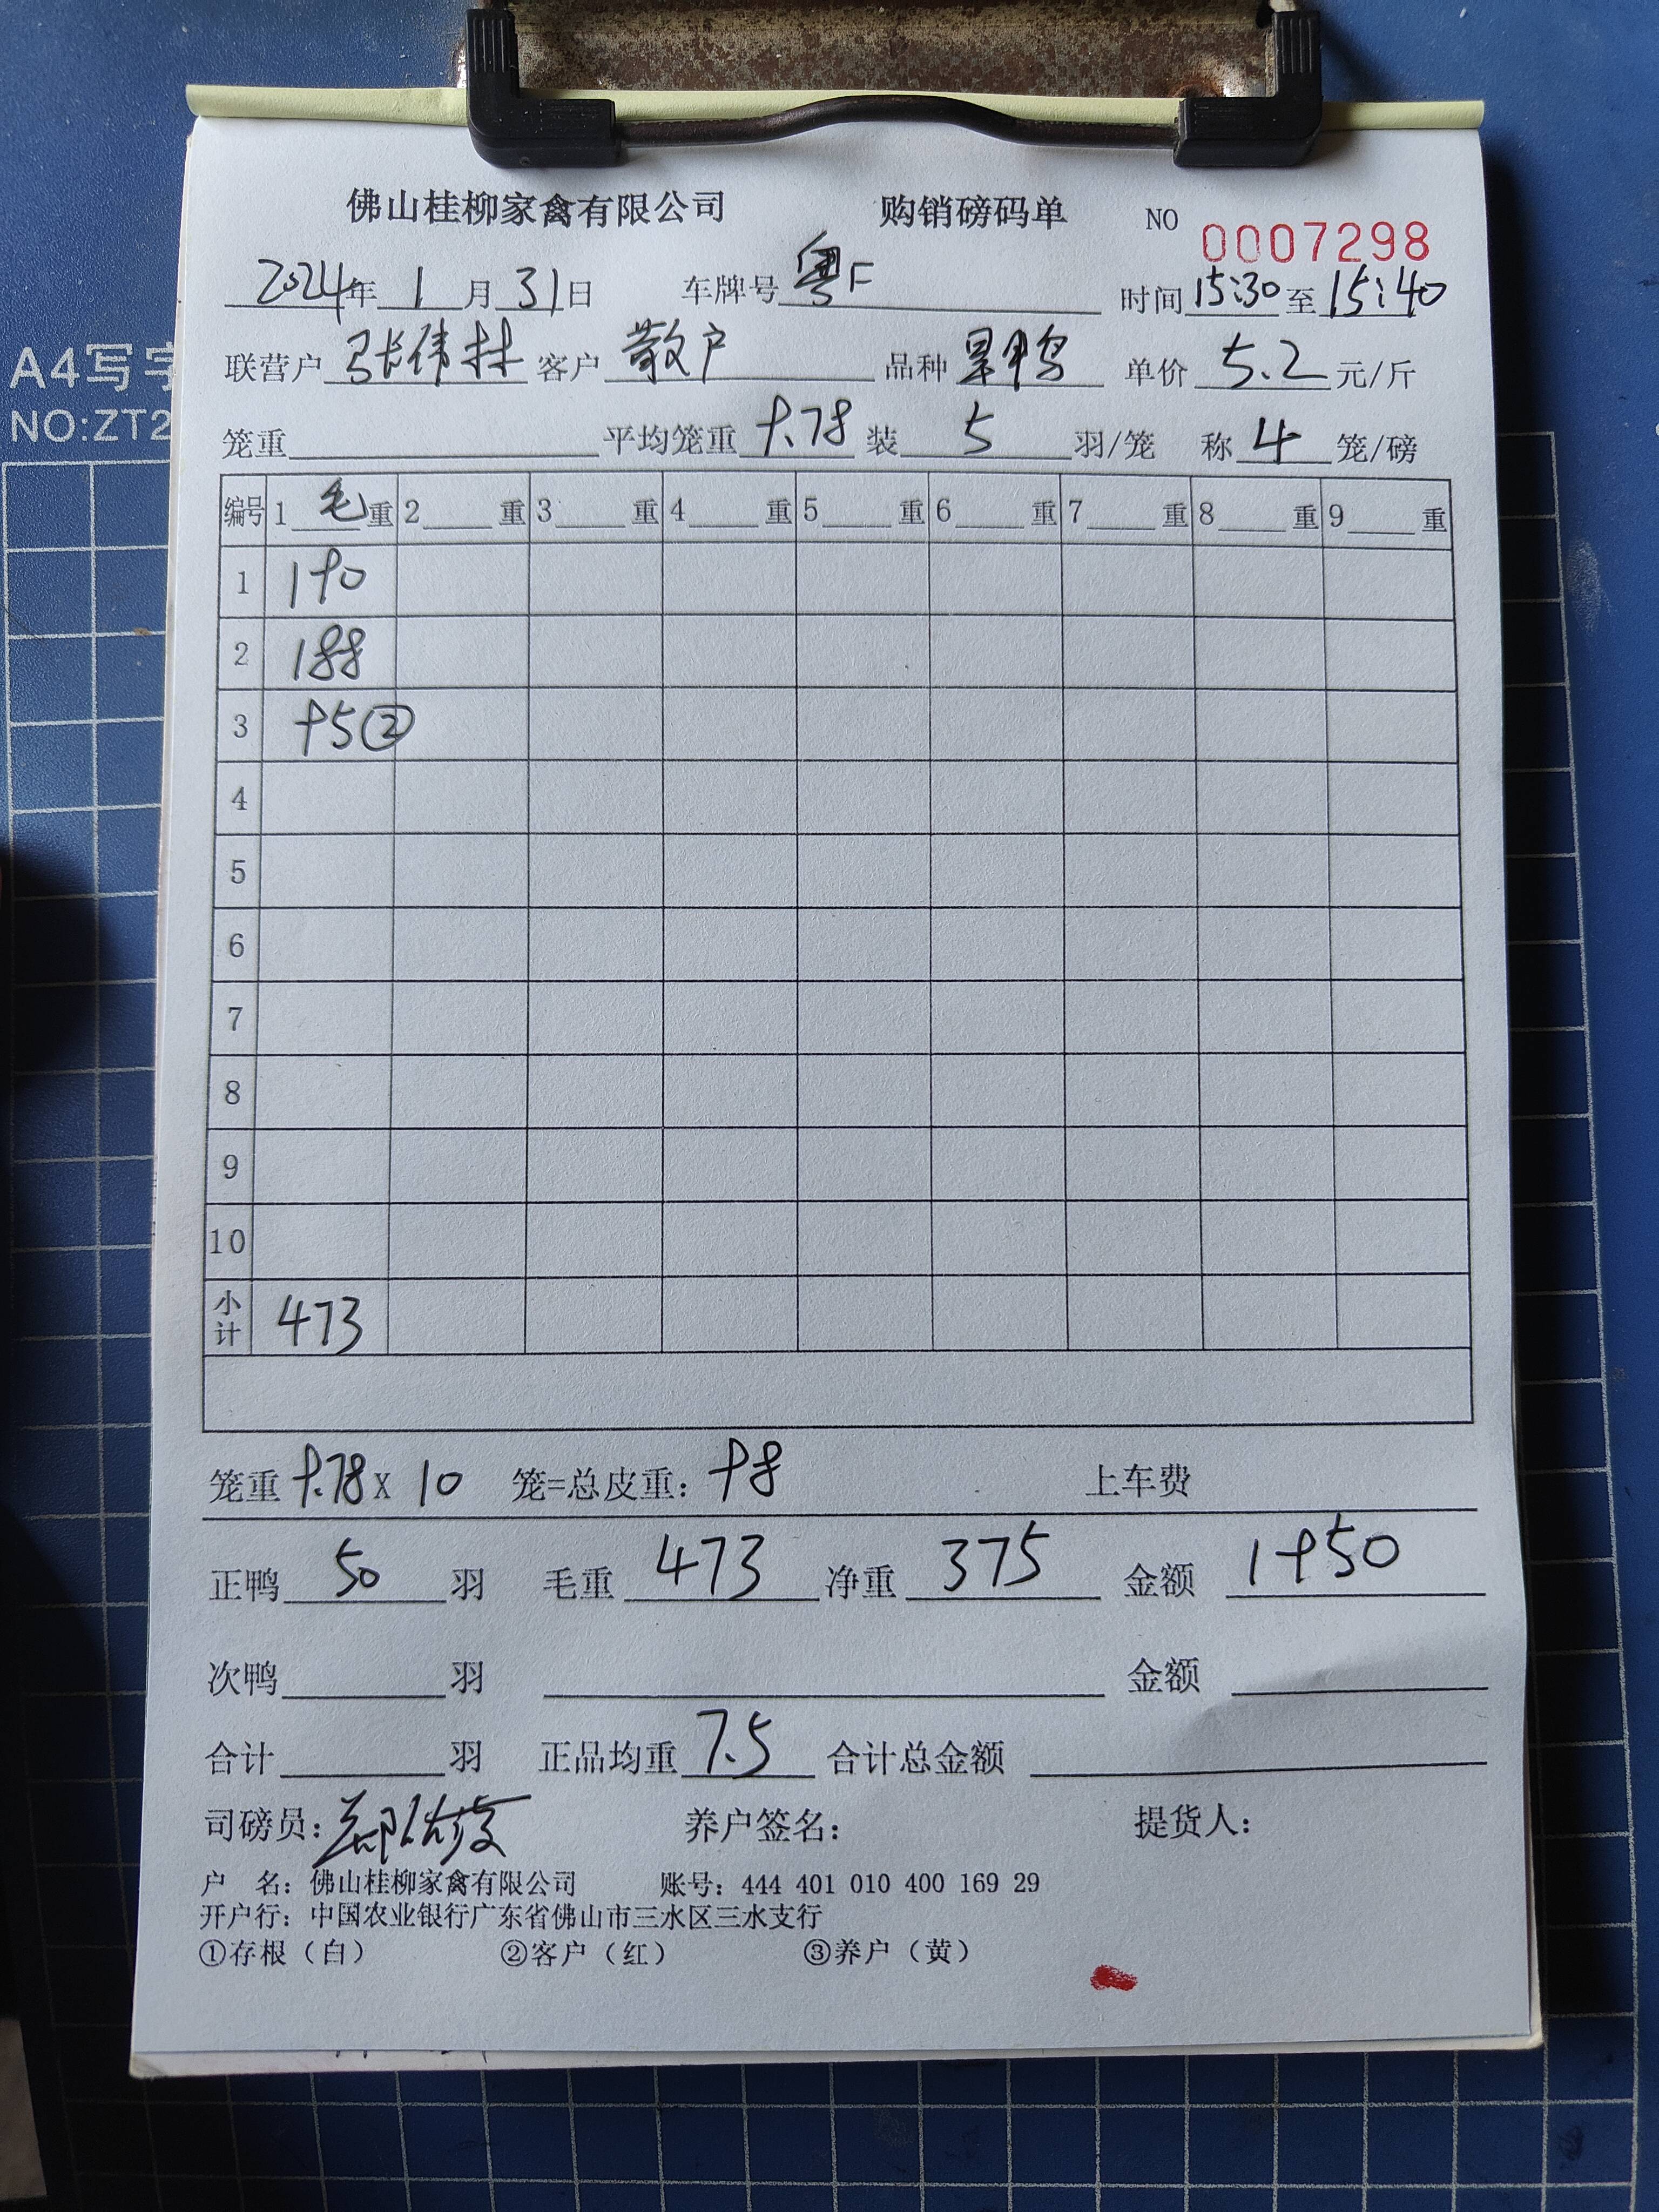 佛山桂柳家禽有限公司 购销磅码单 NO 0007298
2024年1月31日 车牌号 粤F 时间 15:30 至 15:40
A4写字
NO:ZT2
联营户 张伟林 客户 散户 品种 旱鸭 单价 5.2 元/斤
笼重 平均笼重 9.78 装 5 羽/笼 称 4 笼/磅
编号 1 毛 重 2 重 3 重 4 重 5 重 6 重 7 重 8 重 9 重
1 190
2 188
3 95②
4
5
6
7
8
9
10
小计 473
笼重 9.78 X 10 笼=总皮重: 98 上车费
正鸭 50 羽 毛重 473 净重 375 金额 1950
次鸭 羽 金额
合计 羽 正品均重 7.5 合计总金额
司磅员: 养户签名: 提货人:
户 名: 佛山桂柳家禽有限公司 账号: 444 401 010 400 169 29
开户行: 中国农业银行广东省佛山市三水区三水支行
①存根(白) ②客户(红) ③养户(黄)